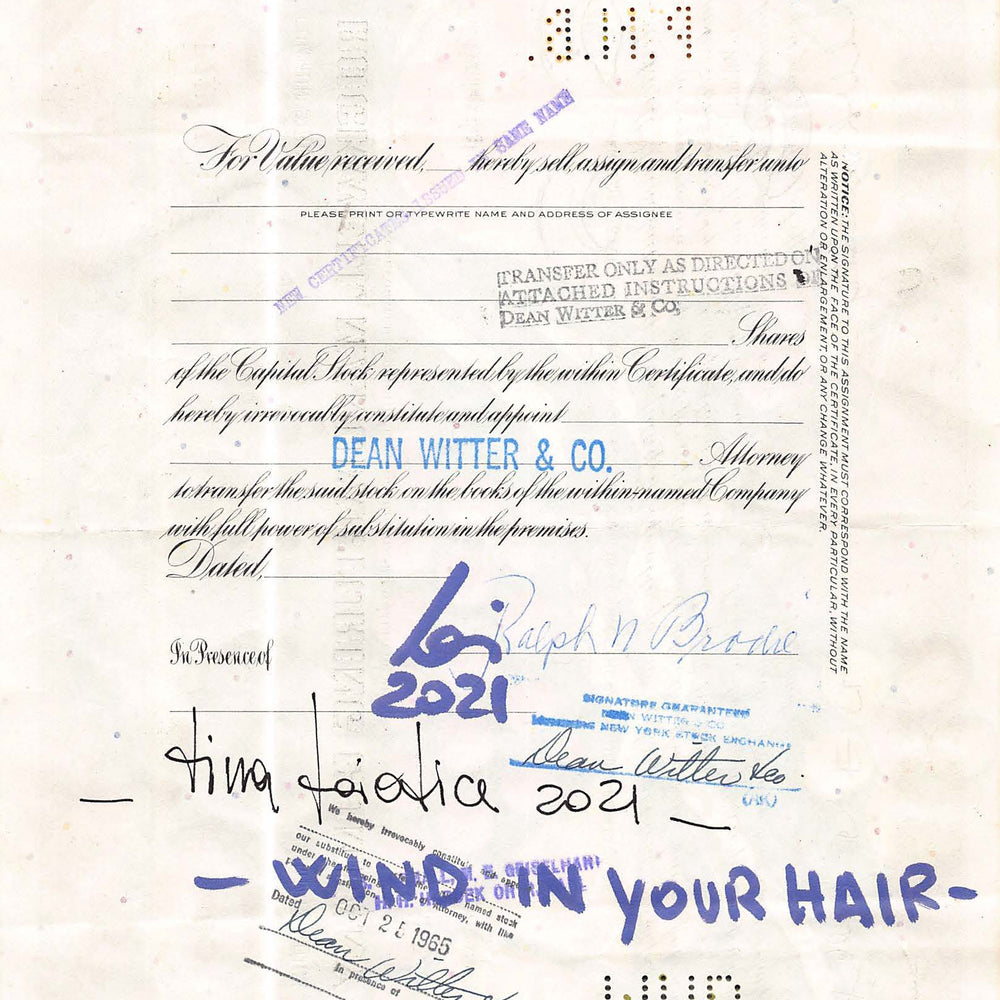 P.H.B.
NEW CERTIFICATE ISSUED IN SAME NAME
For Value received, hereby sell, assign and transfer unto
PLEASE PRINT OR TYPEWRITE NAME AND ADDRESS OF ASSIGNEE
TRANSFER ONLY AS DIRECTED ON
ATTACHED INSTRUCTIONS OF
DEAN WITTER & CO.
Shares
of the Capital Stock represented by the within Certificate, and do
hereby irrevocably constitute and appoint
DEAN WITTER & CO.
Attorney
to transfer the said stock on the books of the within-named Company
with full power of substitution in the premises.
Dated,
NOTICE: THE SIGNATURE TO THIS ASSIGNMENT MUST CORRESPOND WITH THE NAME
AS WRITTEN UPON THE FACE OF THE CERTIFICATE, IN EVERY PARTICULAR, WITHOUT
ALTERATION OR ENLARGEMENT, OR ANY CHANGE WHATEVER.
Ralph N Brodie
In Presence of
2021
SIGNATURE GUARANTEED
DEAN WITTER & CO
NEW YORK STOCK EXCHANGE
Dean Witter & Co.
2021
We hereby irrevocably constitute and appoint
our substitute to named stock
under Attorney, with like
Dated OCT 25 1965
Dean Witter
In presence of
- WIND IN YOUR HAIR -